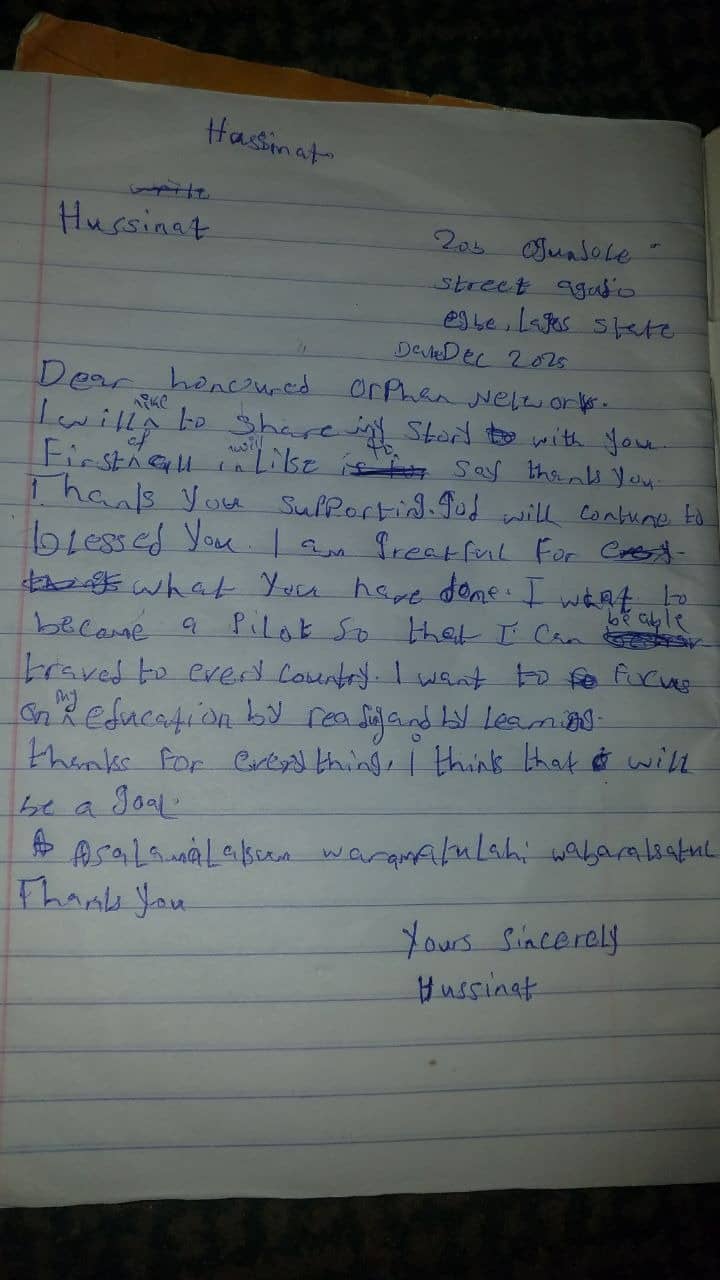 Hassinat
Hussinat
20b Ogunsole
street agasio
egbe, Lagos state
Date Dec 2025
Dear honoured Orphan Network.
I will like to share my story with you
First of all i will like to say thank you.
Thank you supporting. god will contune to
blessed you. I am greatfull for
what you have done. I want to
become a Pilot so that I can be able
traved to every country. I want to focus
on my education by readig and by learning.
thanks for everything, i think that will
be a goal.
Asalamalakun waramatulahi wabarakatul
Thank you
Yours Sincerely
Hussinat